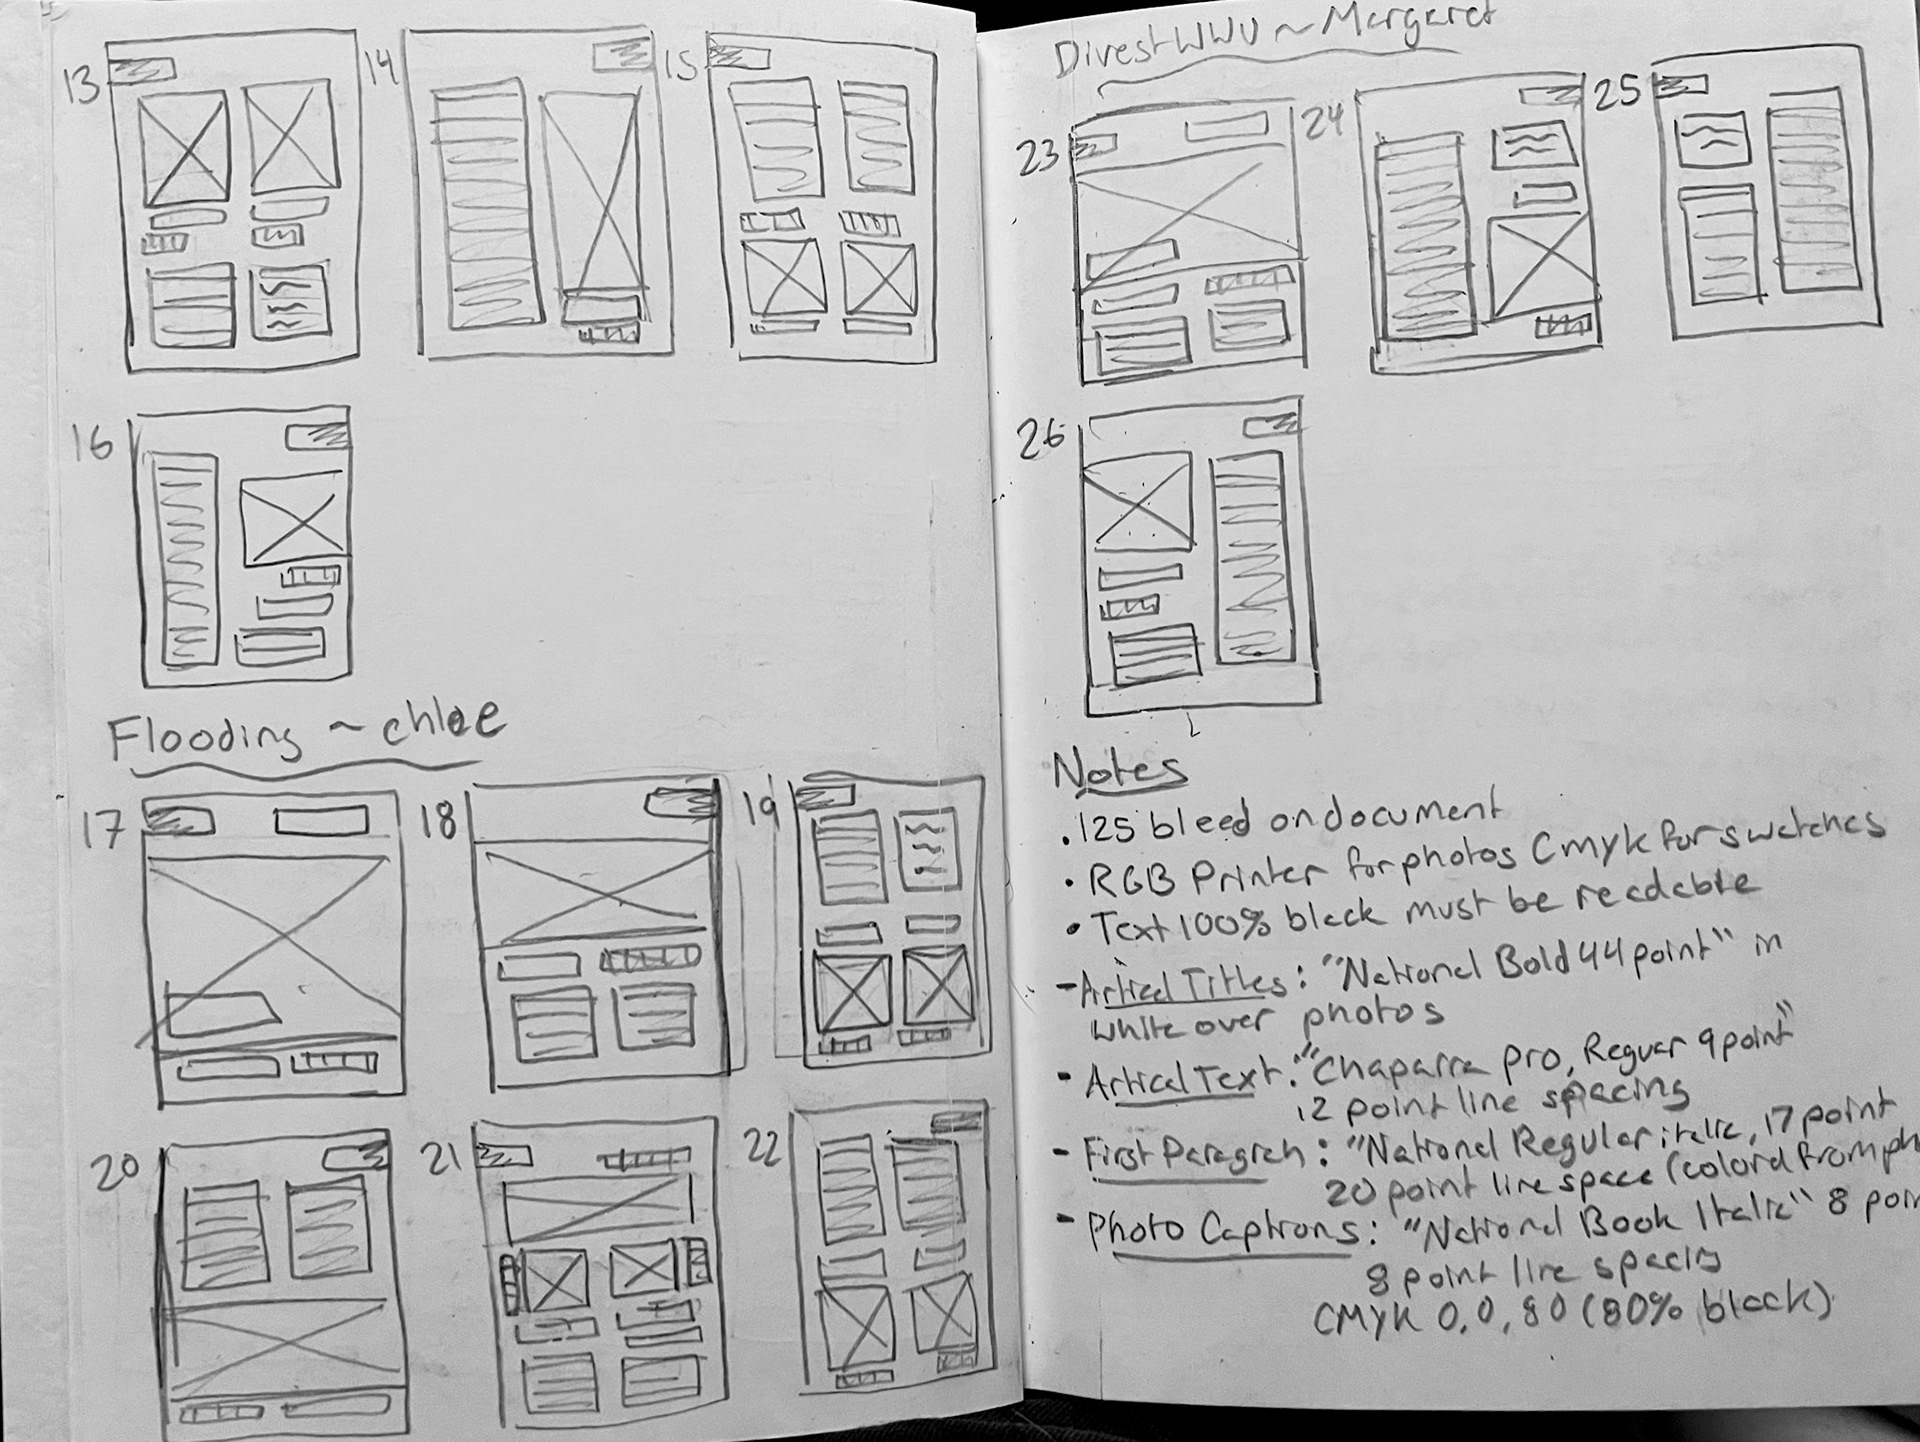 13
14
15
16
Flooding ~ chloe
17
18
19
20
21
22
Divest WWU ~ Margaret
23
24
25
26
Notes
.125 bleed on document
• RGB Printer for photos Cmyk for swatches
• Text 100% black must be readable
- Artical Titles: "National Bold 44 point" in
white over photos
- Artical Text: "Chaparra pro, Reguar 9 point"
12 point line spacing
- First Paragrah: "National Regular italic, 17 point
20 point line space (colord from ph
- Photo Captions: "National Book Italic" 8 poin
8 point line spacing
CMYK 0,0,80 (80% black)